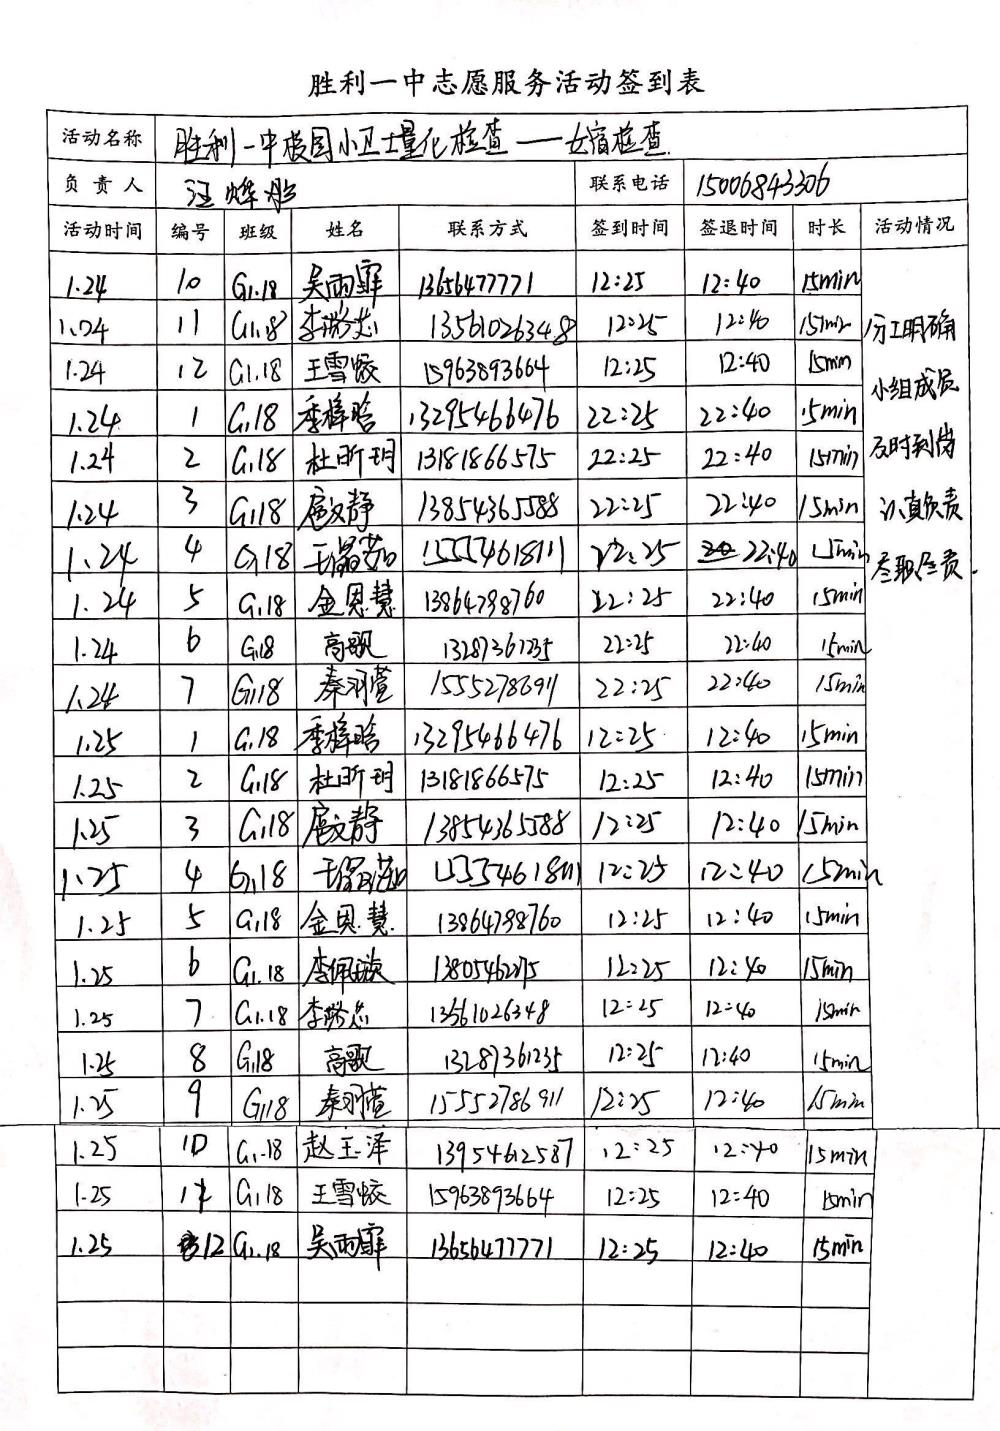 胜利一中志愿服务活动签到表
活动名称 胜利一中校园小卫士量化检查——女宿检查
负责人 汪烨彤 联系电话 15006843306
活动时间 编号 班级 姓名 联系方式 签到时间 签退时间 时长 活动情况
1.24 10 G1.18 吴雨霏 13656477771 12:25 12:40 15min
1.24 11 G1.18 李 13561026348 12:25 12:40 15min 分工明确
1.24 12 G1.18 王雪 15963893664 12:25 12:40 15min 小组成员
1.24 1 G1.18 季梓晗 13295466476 22:25 22:40 15min
1.24 2 G1.18 杜昕玥 13181866575 22:25 22:40 15min 及时到岗
1.24 3 G1.18 扈文静 13854365588 22:25 22:40 15min 认真负责
1.24 4 G1.18 15554618111 22:25 22:40 15min 尽职尽责.
1.24 5 G1.18 金恩慧 13864798760 22:25 22:40 15min
1.24 6 G1.18 高歌 13287361235 22:25 22:40 15min
1.24 7 G1.18 秦羽萱 15552786911 22:25 22:40 15min
1.25 1 G1.18 季梓晗 13295466476 12:25 12:40 15min
1.25 2 G1.18 杜昕玥 13181866575 12:25 12:40 15min
1.25 3 G1.18 扈文静 13854365588 12:25 12:40 15min
1.25 4 G1.18 15554618111 12:25 12:40 15min
1.25 5 G1.18 金恩慧 13864798760 12:25 12:40 15min
1.25 6 G1.18 李佩璇 12:25 12:40 15min
1.25 7 G1.18 李 13561026348 12:25 12:40 15min
1.25 8 G1.18 高歌 13287361235 12:25 12:40 15min
1.25 9 G1.18 秦羽萱 15552786911 12:25 12:40 15min
1.25 10 G1.18 赵玉泽 13954612587 12:25 12:40 15min
1.25 11 G1.18 王雪 15963893664 12:25 12:40 15min
1.25 12 G1.18 吴雨霏 13656477771 12:25 12:40 15min